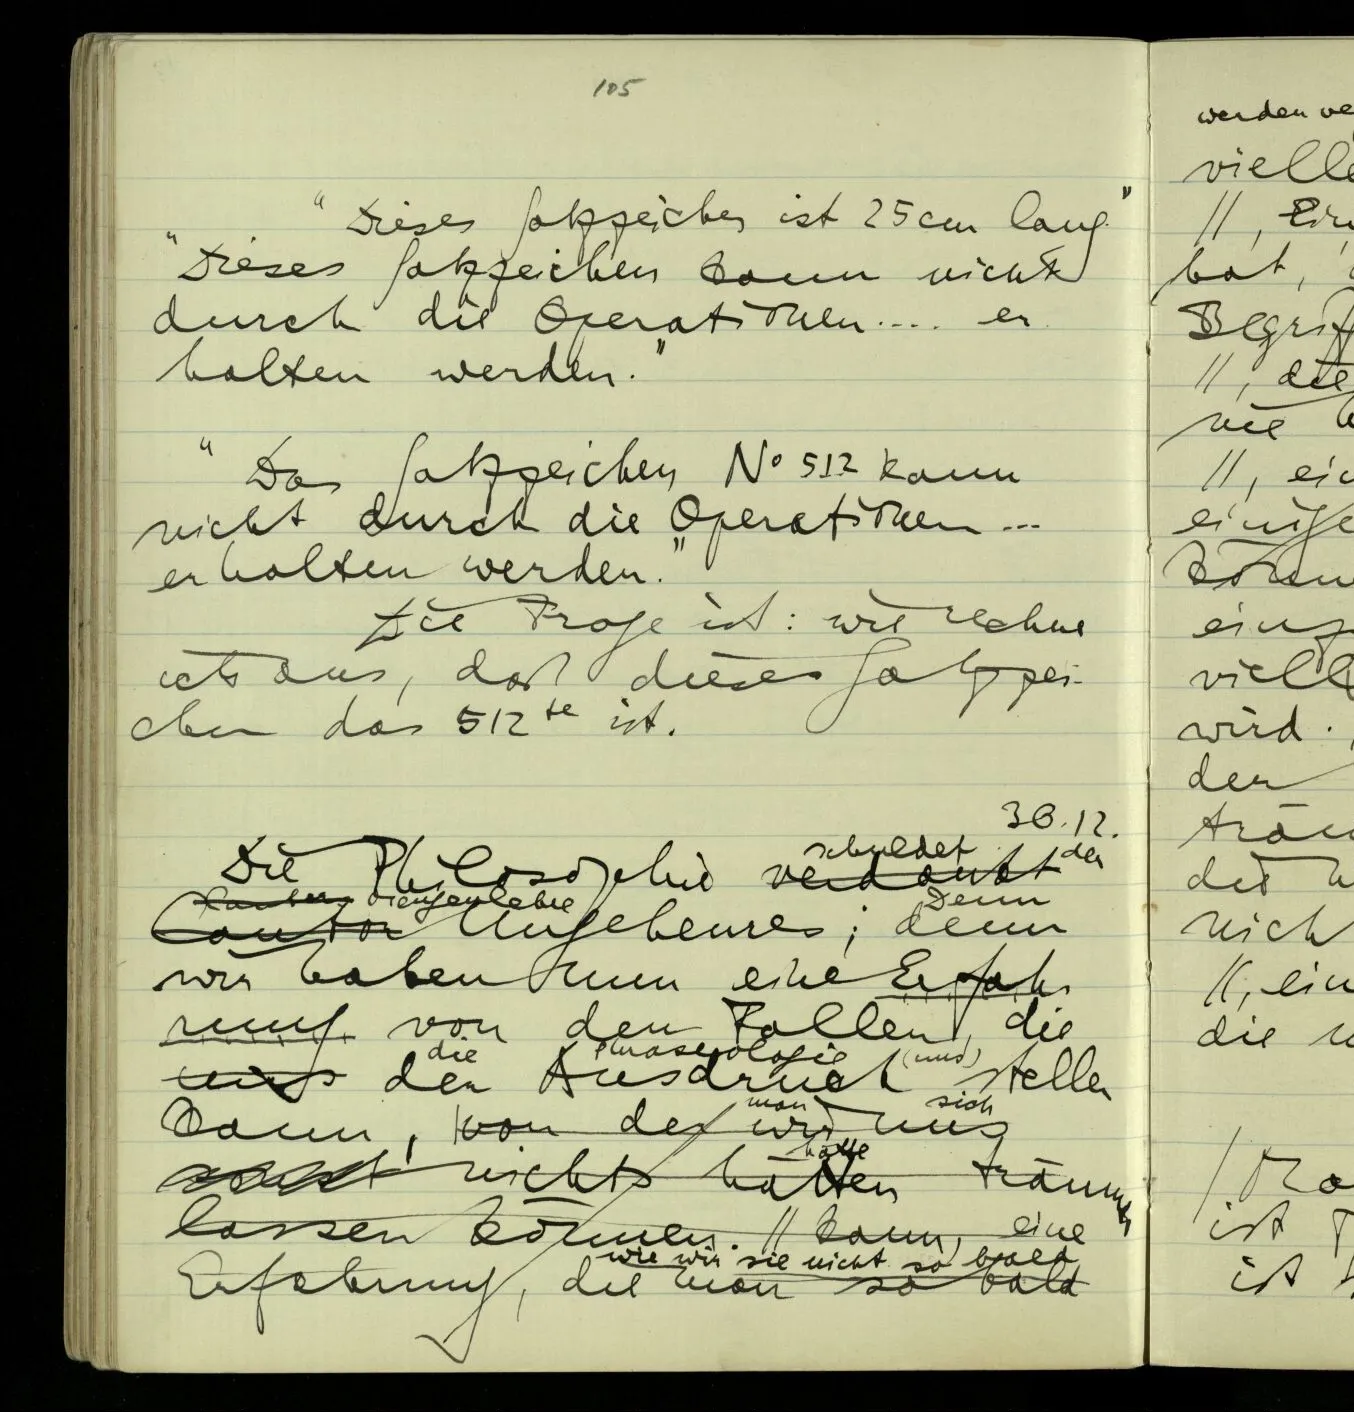 105
"Dieses Satzzeichen ist 25 cm lang."
"Dieses Satzzeichen kann nicht
durch die Operationen.... er
halten werden."
"Das Satzzeichen No 512 kann
nicht durch die Operationen ...
erhalten werden."
Die Frage ist: wie rechne
ich aus, daß dieses Satzzei-
chen das 512te ist.
30.12.
schuldet der
Die Philosophie verdankt
Mengenlehre Denn
Cantor Ungeheures; denn
wir haben nun eine Erfah
rung von den Fallen, die
die Phraseologie (uns)
uns der Ausdruck stellen
man sich
kann, von der wir uns
hätte
nichts hätten träumen
lassen können. // kann, eine
wie wir sie nicht so bald
Erfahrung, die man so bald
werden ve
vielle
//, Ein
hat,
Begriff
//, die
wie
//, ein
einige
einz
vielle
wird.
der
träu
die
nich
//, ein
die
ist
ist